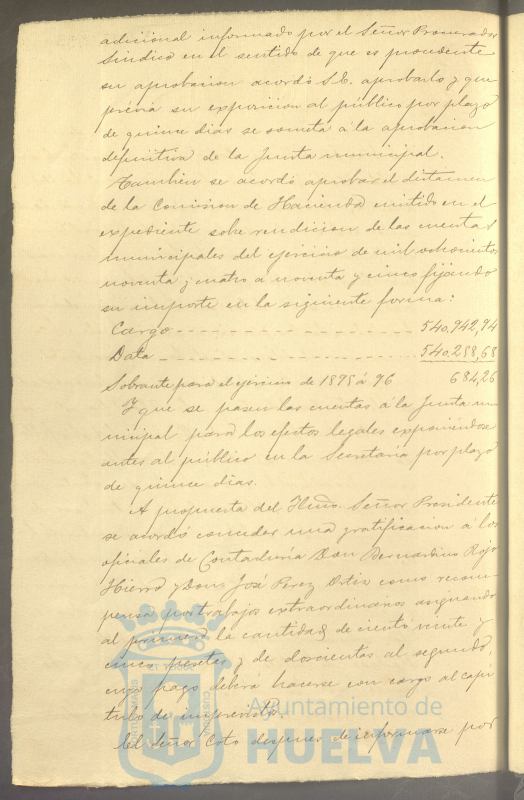 adicional informado por el Señor Procurador
Sindico en el sentido de que es procedente
su aprobacion acordó S.E. aprobarlo y que
prévia su exposicion al público por plazo
de quince dias se someta á la aprobacion
definitiva de la Junta municipal.
Tambien se acordó aprobar el dictamen
de la Comision de Hacienda emitido en el
expediente sobre rendicion de las cuentas
municipales del ejercicio de mil ochocientos
noventa y cuatro a noventa y cinco fijando
su importe en la siguiente forma:
Cargo - - - - - - - - - - - - 540,942,94
Data - - - - - - - - - - - - 540.258,68
Sobrante para el ejercicio de 1895 á 96 684,26
Y que se pasen las cuentas á la Junta mu-
nicipal para los efectos legales exponiéndose
antes al público en la Secretaría por plazo
de quince dias.
A propuesta del Iltmo. Señor Presidente
se acordó conceder una gratificacion á los
oficiales de Contaduría Don Bernardino Rojo
Hierro y Don José Perez Ortiz como recom-
pensa por trabajos extraordinarios asignando
al primero la cantidad de ciento veinte y
cinco pesetas y de doscientas al segundo,
cuyo pago deberá hacerse con cargo al capí
tulo de imprevistos.
El Señor Coto despues de informarse por
Ayuntamiento de
HUELVA